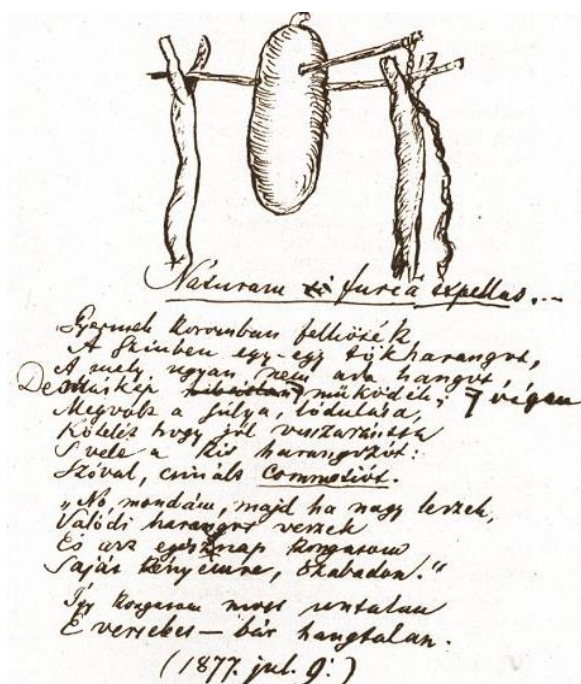 Naturam furcâ expellas....
Gyermek koromban felköték
A szinben egy-egy tökharangot,
A mely ugyan nem ada hangot,
De máskép vígan működék;
Megvolt a súlya, lódulása,
Kötelét hogy jól visszarántsa
S vele a kis harangozót:
Szóval, csinált commotiót.
„No, mondám, majd ha nagy leszek,
Valódi harangot veszek
És azt egész nap kongatom
Saját kényemre, szabadon."
Így kongatom most untalan
E verseket – bár hangtalan.
(1877. jul. 9.)